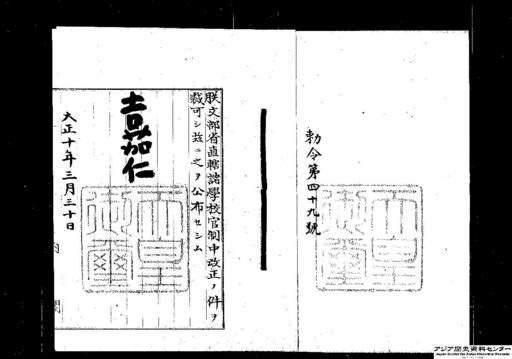 勅令第四十九號
朕文部省直轄諸學校官制中改正ノ件ヲ
裁可シ茲ニ之ヲ公布セシム
嘉仁
天皇御璽
大正十年三月三十日
天皇御璽
アジア歴史資料センター
Japan Center for Asian Historical Records